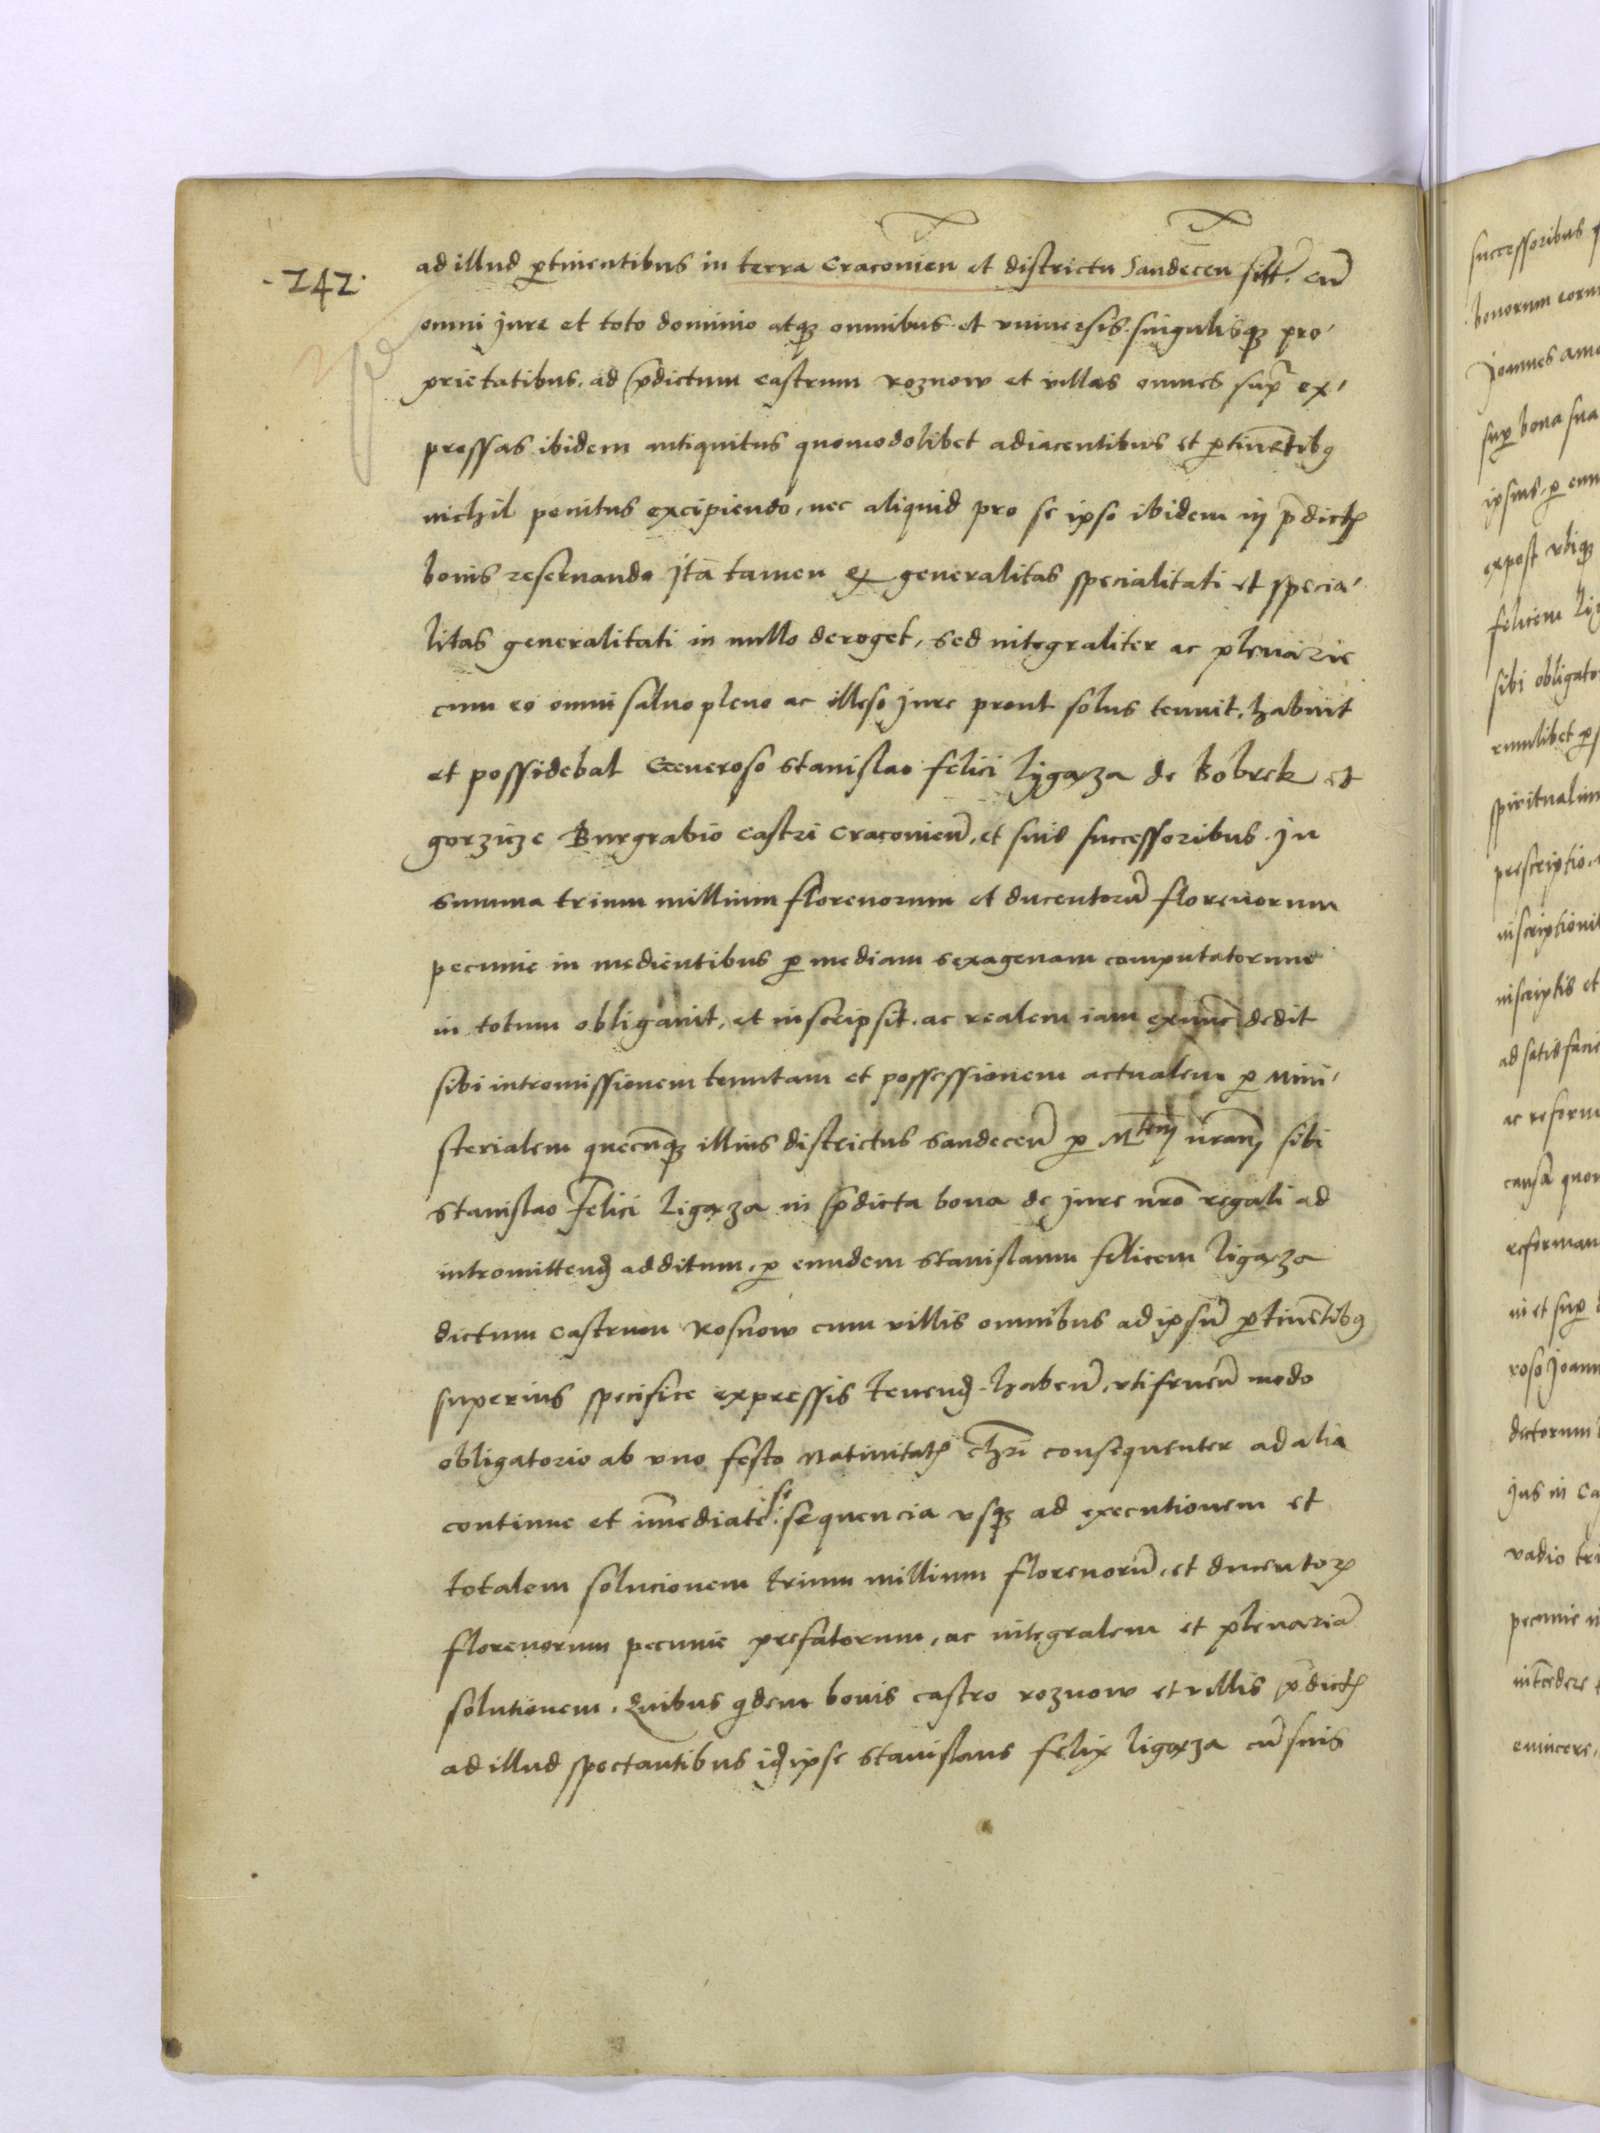 ·242·
ad illud p̱tinentibus in terra Cracovien et districtu Sandecen sitt̃. cũ
omni jure et toto dominio atqꝫ omnibus et vniuersis singulisqꝫ pro'
prietatibus, ad p̃dictum castrum roznow et villas omnes sup̃ ex'
pressas ibidem antiquitus quomodolibet adiacentibus et p̱tinẽtibꝯ
nichil penitus excipiendo, nec aliquid pro se ipso ibidem in p̃dictꝭ
bonis reseruando jta tamen ꝙ generalitas specialitati et specia'
litas generalitati in nullo deroget, sed integraliter ac plenarie
cum eo omni saluo pleno ac illeso jure prout solus tenuit, habuit
et possidebat Generoso Stanislao felici lygąza de Bobrek et
gorzicze Burgrabio Castri Cracovieñ, et suis successoribus jn
summa trium millium florenorum et ducentorũ florenorum
pecunie in medientibus p̱ mediam sexagenam computatorum
in totum obligauit, et inscripsit. ac realem iam exnunc dedit
sibi intromissionem tenutam et possessionem actualem p̱ mini'
sterialem quecũqꝫ illius districtus Sandeceñ p̱ Mtem nram sibi
Stanislao Felici ligąza in p̃dicta bona de jure nr̃o regali ad
intromittenđ additum, p̱ eundem Stanislaum felicem ligąza
dictum Castrum Rosnow cum villis omnibus ad ipsũ p̱tinẽtibꝯ
superius specifice expressis tenenđ habeñ, vtifrueñ modo
obligatorio ab vno festo Natiuitatꝭ chr̃i consequenter ad alia
continue et im̃ediate se sequencia vsqꝫ ad executionem et
totalem solucionem trium millium florenorũ, et ducentoꝝ
florenorum pecunie prefatorum, ac integralem et plenariã
solutionem. Quibus q̇dem bonis castro roznow et villis p̃dictꝭ
ad illud spectantibus iđ ipse Stanislaus felix ligąza cũ suis
successoribus
bonorum eorum
Joannes
sup̱ bona sua
ipsius, p̱
expost vbiqꝫ
felicem
sibi
spiritualium
ad
ac
causa
in et sup̱
jus in
vadio
pecunie